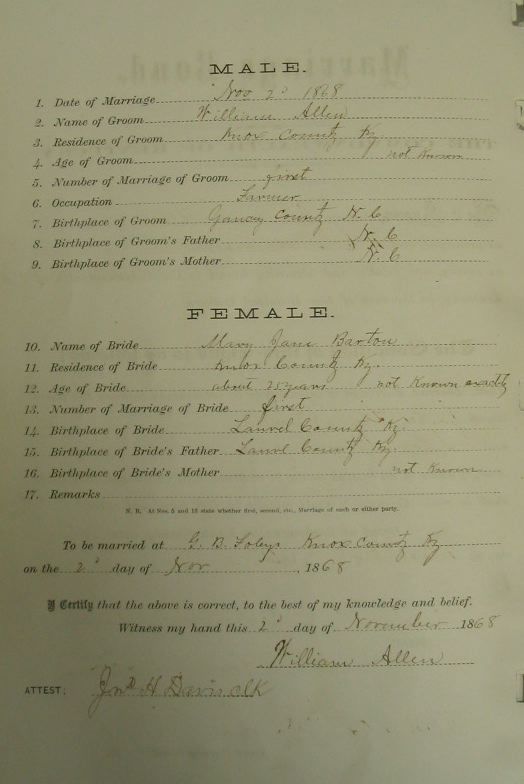 MALE.
1. Date of Marriage Nov 2d 1868
2. Name of Groom William Allen
3. Residence of Groom Knox County Ky
4. Age of Groom not Known
5. Number of Marriage of Groom first
6. Occupation Farmer
7. Birthplace of Groom County N. C
8. Birthplace of Groom's Father N. C
9. Birthplace of Groom's Mother N. C
FEMALE.
10. Name of Bride Mary Jane Barton
11. Residence of Bride Knox County Ky.
12. Age of Bride about 25 years not Known exactly
13. Number of Marriage of Bride first
14. Birthplace of Bride Laurel County Ky.
15. Birthplace of Bride's Father Laurel County Ky.
16. Birthplace of Bride's Mother not Known
17. Remarks
N. B. At Nos. 5 and 13 state whether first, second, etc., Marriage of each or either party.
To be married at G. B. Foleys Knox County Ky
on the 2d day of Nov, 1868
I Certify that the above is correct, to the best of my knowledge and belief.
Witness my hand this 2d day of November 1868
William Allen
ATTEST; Jno H Davis clk